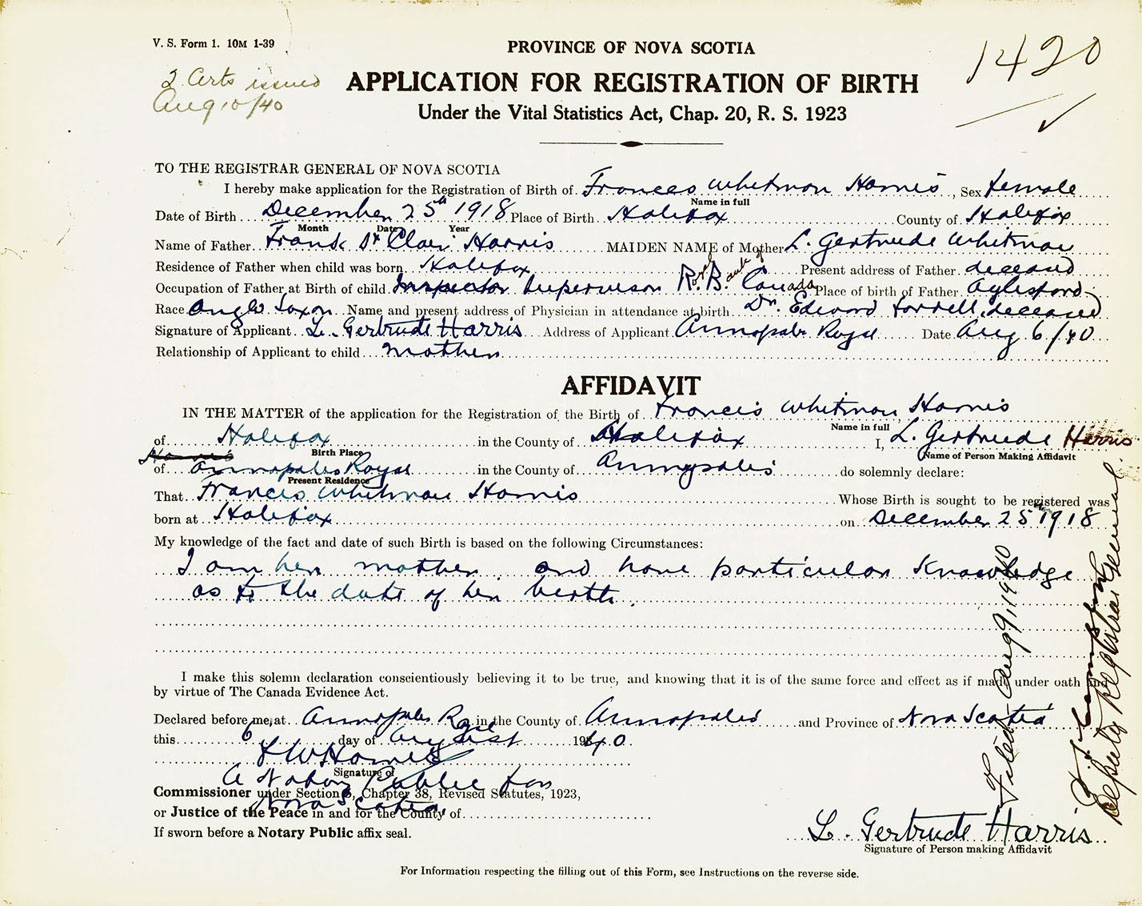 V. S. Form 1. 10M 1-39
PROVINCE OF NOVA SCOTIA
1420
2 Certs issued
Aug 10/40
APPLICATION FOR REGISTRATION OF BIRTH
Under the Vital Statistics Act, Chap. 20, R. S. 1923
TO THE REGISTRAR GENERAL OF NOVA SCOTIA
I hereby make application for the Registration of Birth of Frances Whitman Harris, Sex female
Name in full
Date of Birth December 25th 1918 Place of Birth Halifax County of Halifax
Month Date Year
Name of Father Frank St Clair Harris MAIDEN NAME of Mother L. Gertrude Whitman
Residence of Father when child was born Halifax Present address of Father deceased
Occupation of Father at Birth of child Inspector Supervisor Royal Bank of Canada Place of birth of Father Aylesford
Race Anglo Saxon Name and present address of Physician in attendance at birth Dr. Edward Farrell, deceased
Signature of Applicant L. Gertrude Harris Address of Applicant Annapolis Royal Date Aug 6/40
Relationship of Applicant to child mother
AFFIDAVIT
IN THE MATTER of the application for the Registration of the Birth of Francis Whitman Harris
Name in full
of Halifax in the County of Halifax I, L. Gertrude Harris
Harris Birth Place Name of Person Making Affidavit
of Annapolis Royal in the County of Annapolis do solemnly declare:
Present Residence
That Francis Whitman Harris Whose Birth is sought to be registered was
born at Halifax on December 25 1918
My knowledge of the fact and date of such Birth is based on the following Circumstances:
I am her mother and have particular knowledge
as to the date of her birth.
I make this solemn declaration conscientiously believing it to be true, and knowing that it is of the same force and effect as if made under oath
by virtue of The Canada Evidence Act.
Declared before me, at Annapolis Royal in the County of Annapolis and Province of Nova Scotia
this 6 day of August 1940
Harris
Signature of
A Notary Public for
Commissioner under Section 3, Chapter 38, Revised Statutes, 1923,
Nova Scotia
or Justice of the Peace in and for the County of
If sworn before a Notary Public affix seal.
L. Gertrude Harris
Signature of Person making Affidavit
Filed Aug 9, 1940
Deputy Registrar General
For Information respecting the filling out of this Form, see Instructions on the reverse side.